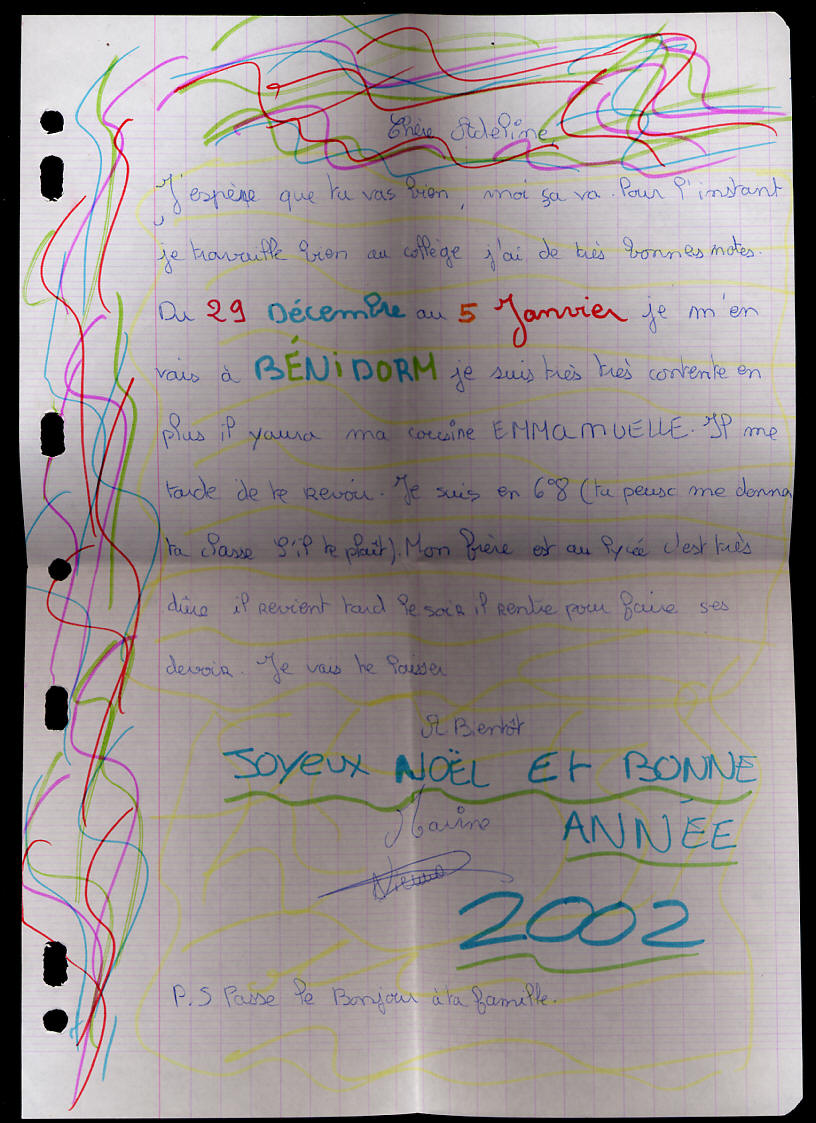 Chère Adeline
J'espère que tu vas bien, moi ça va. Pour l'instant
je travaille bien au collège j'ai de très bonnes notes.
Du 29 Décembre au 5 Janvier je m'en
vais à BÉNIDORM je suis très très contente en
plus il yaura ma cousine EMMANUELLE. Il me
tarde de te revoir. Je suis en 6°8 (tu peusc me donna
ta classe s'il te plaît). Mon frère est au lycée c'est très
dûre il revient tard le soir il rentre pour faire ses
devoir. Je vais te laisser
A Bientôt
JOYEUX NOËL Et BONNE
ANNÉE
Marine
2002
P.S Passe le Bonjour à ta famille.